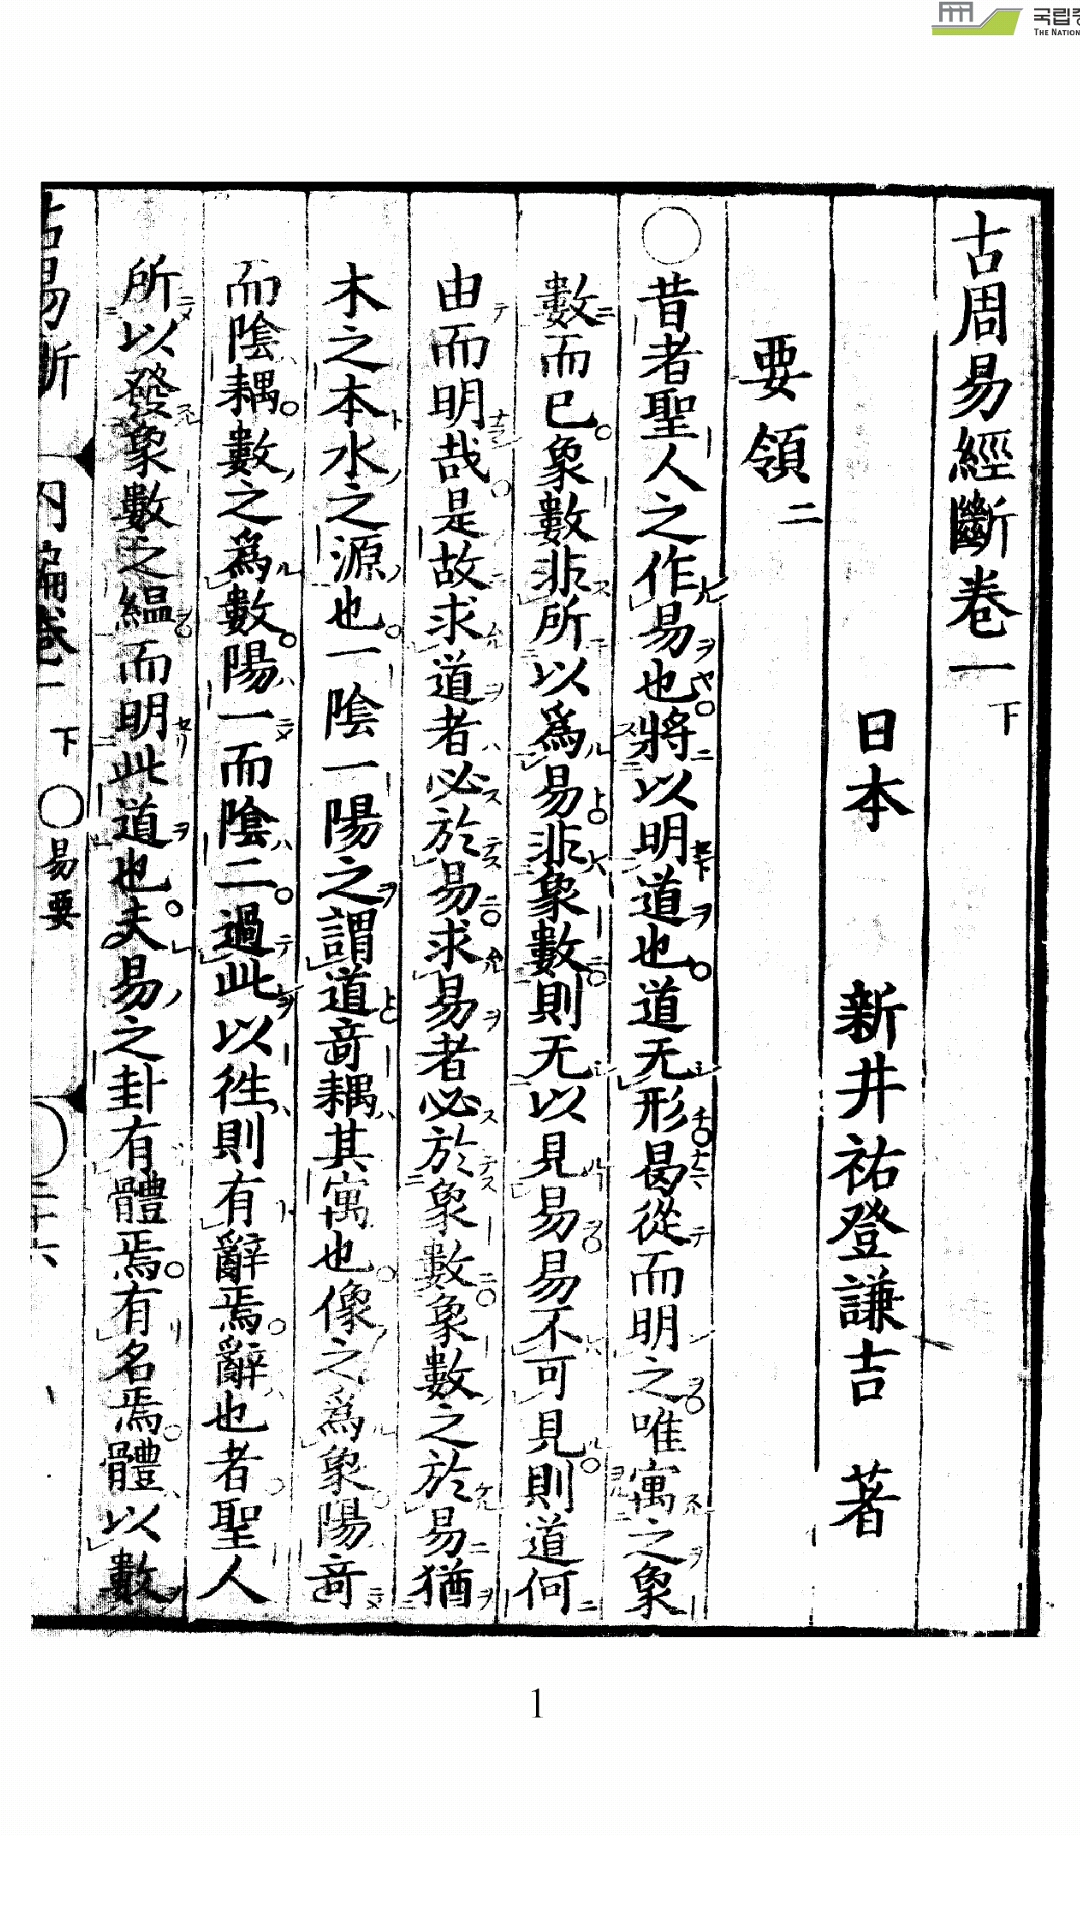 古周易經斷卷一 下
日本 新井祐登謙吉 著
要領 二
○昔者聖人之作易也將以明道也道无形曷從而明之唯寓之象
數而已象數非所以爲易非象數則无以見易易不可見則道何
由而明哉是故求道者必於易求易者必於象數象數之於易猶
木之本水之源也一陰一陽之謂道奇耦其寓也像之爲象陽奇
而陰耦數之爲數陽一而陰二過此以徃則有辭焉辭也者聖人
所以發象數之緼而明此道也夫易之卦有體焉有名焉體以數
古易斷 內編卷一 下 ○易要 二十六
1
국립중
THE NATION